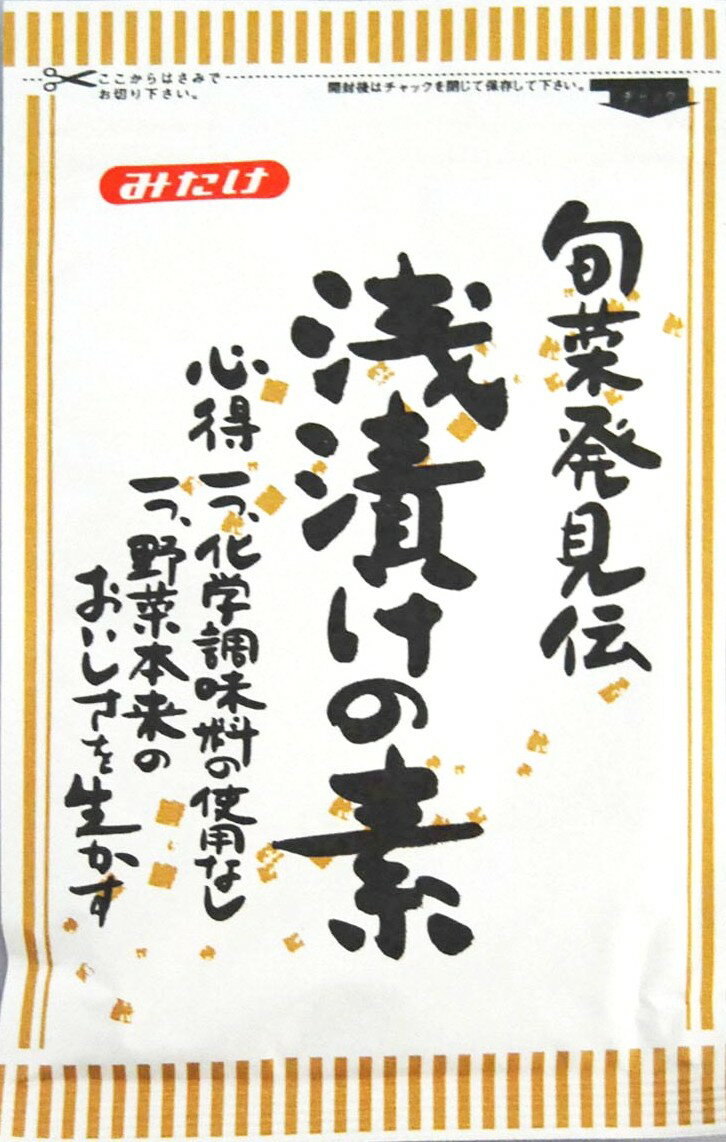 ここからはさみで
お切り下さい。
開封後はチャックを閉じて保存して下さい。
チャック
みたけ
旬菜発見伝
浅漬けの素
心得
一つ、化学調味料の使用なし
一つ、野菜本来の
おいしさを生かす